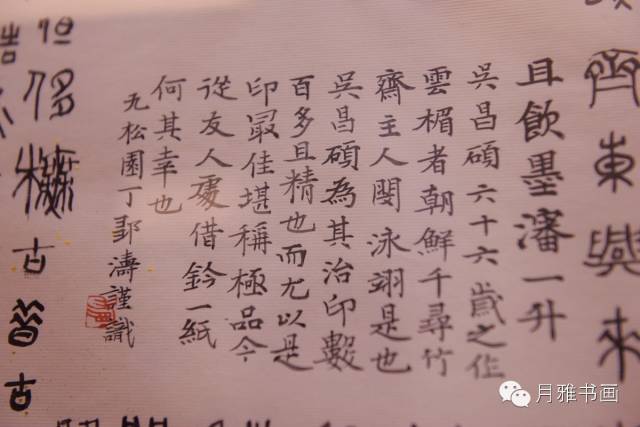 齊東興來
且飲墨瀋一升
吳昌碩六十六歲之作
雲楣者朝鮮千尋竹
齋主人閔泳翊是也
吳昌碩為其治印數
百多且精也而尤以是
印最佳堪稱極品今
從友人處借鈐一紙
何其幸也
松園丁濤謹識
侈古昔古
月雅书画